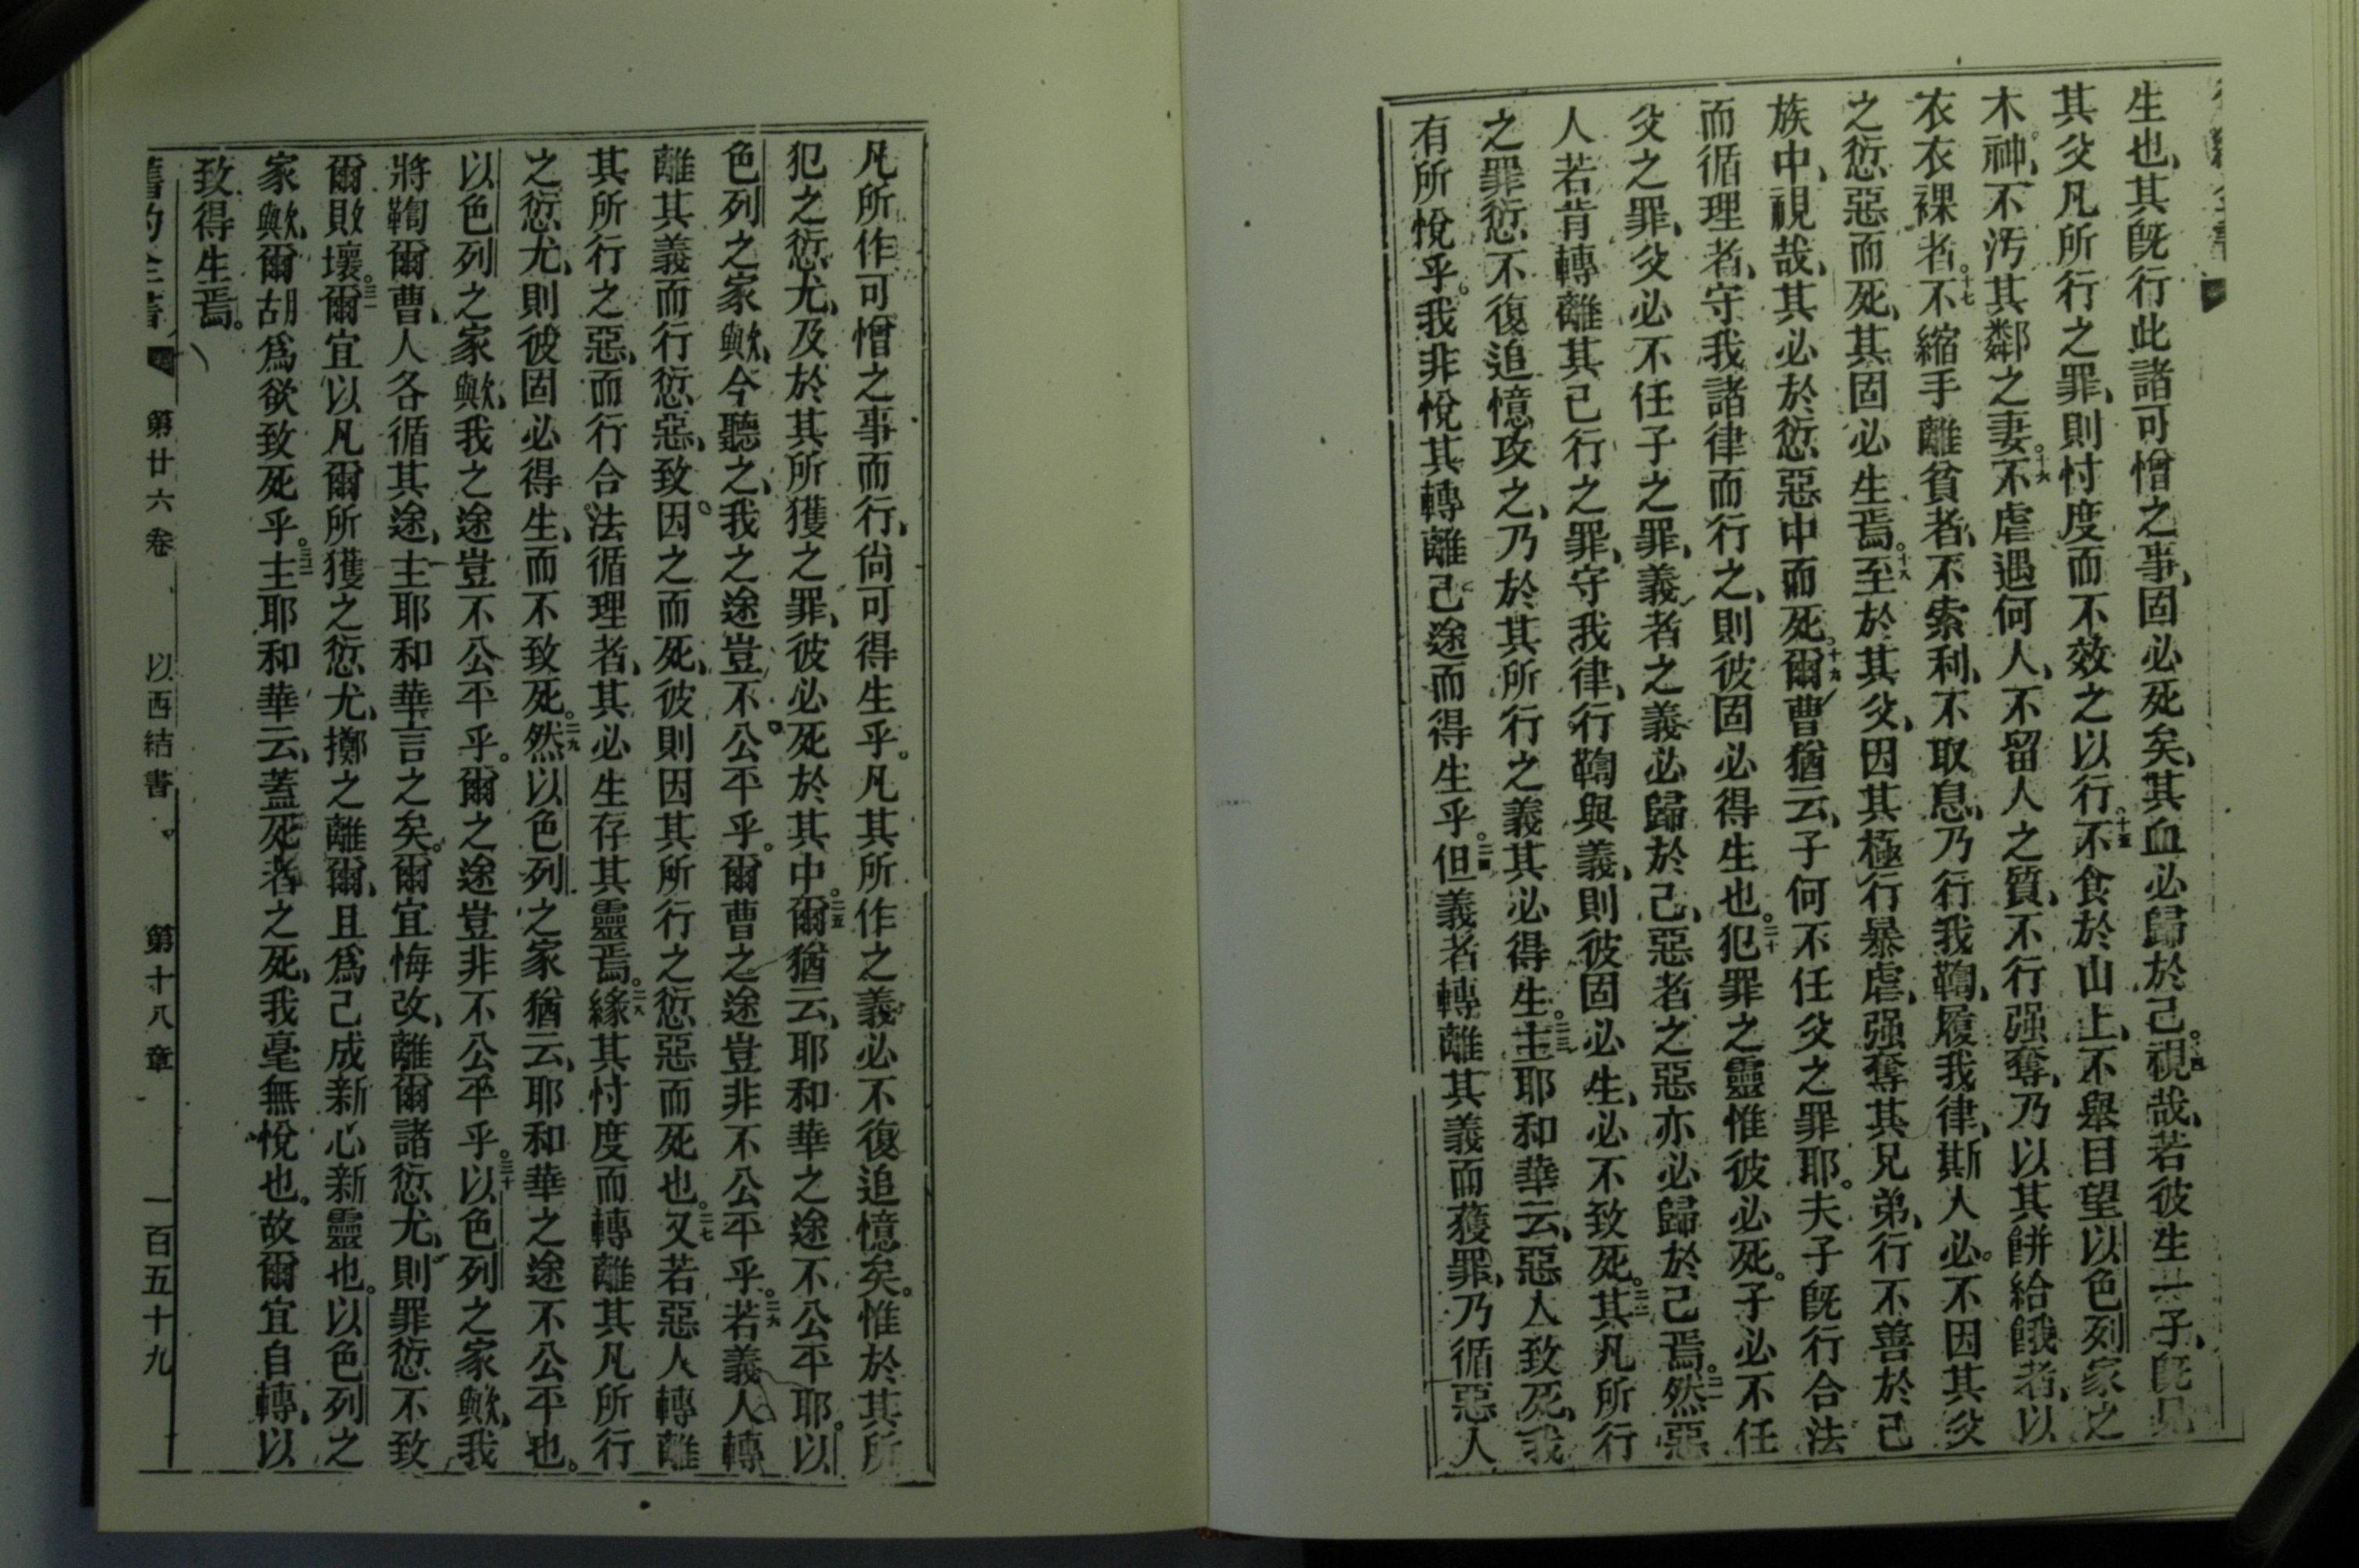 生也、其旣行此諸可憎之事、固必死矣、其血必歸於己。十四視哉、若彼生一子、旣見
其父凡所行之罪、則忖度而不效之以行。十五不食於山上、不舉目望以色列家之
木神、不汚其鄰之妻。十六不虐遇何人、不留人之質、不行强奪、乃以其餅給餓者、以
衣衣裸者。十七不縮手離貧者、不索利、不取息、乃行我鞫、履我律、斯人必不因其父
之愆惡而死、其固必生焉。十八至於其父、因其極行暴虐、强奪其兄弟、行不善於己
族中、視哉、其必於愆惡中而死。十九爾曹猶云、子何不任父之罪耶。夫子旣行合法
而循理者、守我諸律而行之、則彼固必得生也。二十犯罪之靈惟彼必死。子必不任
父之罪、父必不任子之罪、義者之義必歸於己、惡者之惡亦必歸於己焉。二一然惡
人若肯轉離其己行之罪、守我律、行鞫與義、則彼固必生、必不致死。二二其凡所行
之罪愆不復追憶攻之、乃於其所行之義其必得生。二三主耶和華云、惡人致死、我
有所悅乎。我非悅其轉離己途而得生乎。二四但義者轉離其義而獲罪、乃循惡人
凡所作可憎之事而行、尙可得生乎。凡其所作之義必不復追憶矣。惟於其所
犯之愆尤、及於其所獲之罪、彼必死於其中。二五爾猶云、耶和華之途不公平耶。以
色列之家歟、今聽之、我之途豈不公平乎。爾曹之途豈非不公平乎。二六若義人轉
離其義而行愆惡、致因之而死、彼則因其所行之愆惡而死也。二七又若惡人轉離
其所行之惡、而行合法循理者、其必生存其靈焉。二八緣其忖度而轉離其凡所行
之愆尤、則彼固必得生、而不致死。二九然以色列之家猶云、耶和華之途不公平也。
以色列之家歟、我之途豈不公平乎。爾之途豈非不公平乎。三十以色列之家歟、我
將鞫爾曹、人各循其途、主耶和華言之矣。爾宜悔改、離爾諸愆尤、則罪愆不致
爾敗壞。三一爾宜以凡爾所獲之愆尤、擲之離爾、且爲己成新心新靈也。以色列之
家歟、爾胡爲欲致死乎。三二主耶和華云、蓋死者之死、我毫無悅也。故爾宜自轉、以
致得生焉。
舊約全書 第廿六卷 以西結書 第十八章 一百五十九